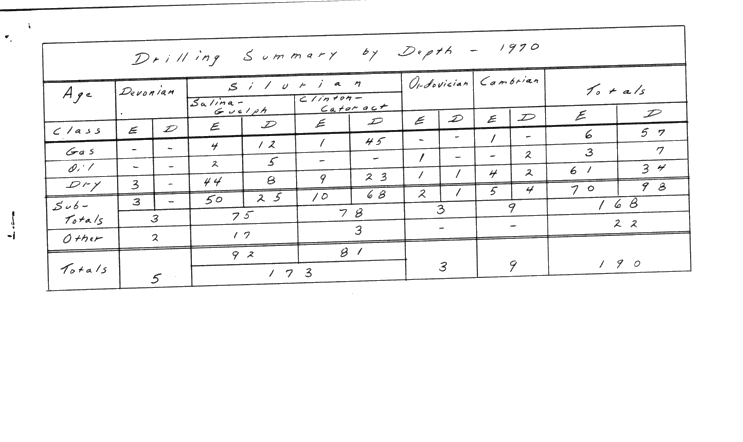 Drilling Summary by Depth - 1970
Age Devonian Silurian Ordovician Cambrian Totals
Salina-Guelph Clinton-Cataract
Class E D E D E D E D E D E D
Gas - - 4 12 1 45 - - 1 - 6 57
Oil - - 2 5 - - 1 - - 2 3 7
Dry 3 - 44 8 9 23 1 1 4 2 61 34
Sub-Totals 3 - 50 25 10 68 2 1 5 4 70 98
3 75 78 3 9 168
Other 2 17 3 - - 22
92 81
Totals 5 173 3 9 190